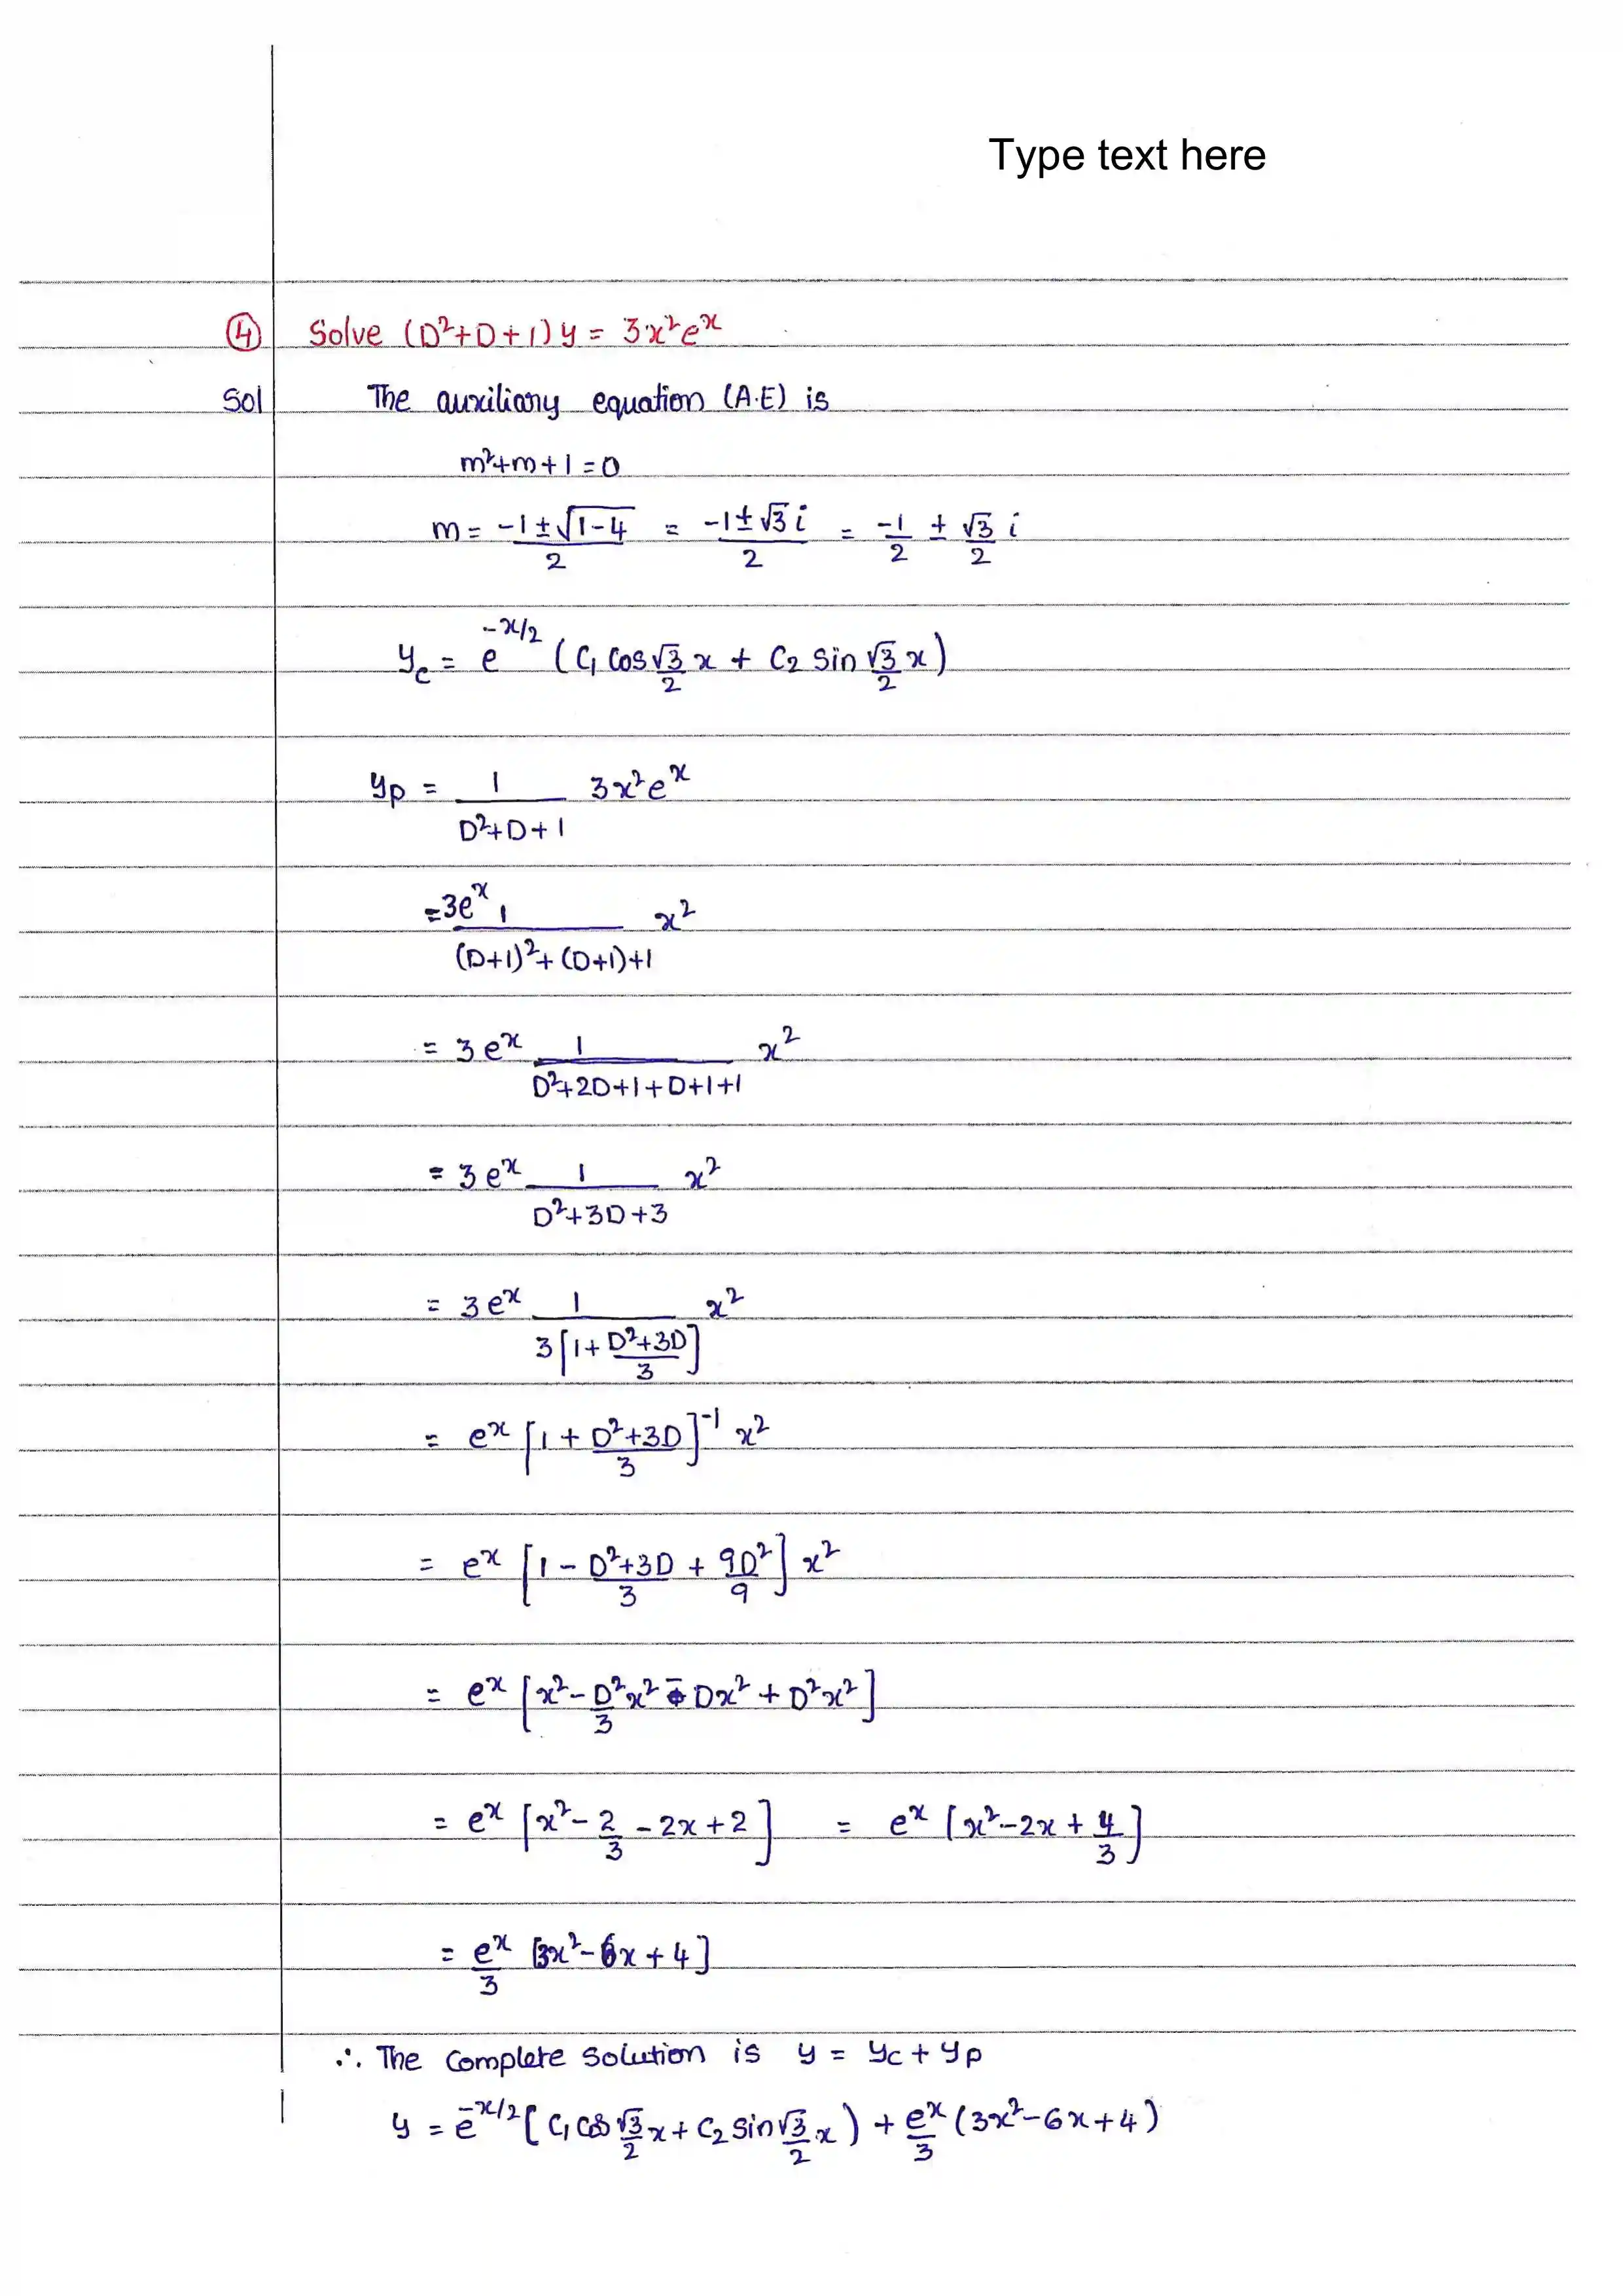 Type text here
④ Solve (D²+D+1)y = 3x²eˣ
Sol The auxiliary equation (A.E) is
m²+m+1=0
m = (-1±√(1-4))/2 = (-1±√3 i)/2 = -1/2 ± √3/2 i
y_c = e^(-x/2) (C₁ Cos √3/2 x + C₂ Sin √3/2 x)
y_p = 1/(D²+D+1) 3x²eˣ
= 3eˣ 1/((D+1)²+(D+1)+1) x²
= 3eˣ 1/(D²+2D+1+D+1+1) x²
= 3eˣ 1/(D²+3D+3) x²
= 3eˣ 1/(3[1+(D²+3D)/3]) x²
= eˣ [1 + (D²+3D)/3]⁻¹ x²
= eˣ [1 - (D²+3D)/3 + 9D²/9] x²
= eˣ [x² - D²/3 x² - Dx² + D²x²]
= eˣ [x² - 2/3 - 2x + 2] = eˣ [x² - 2x + 4/3]
= eˣ/3 [3x² - 6x + 4]
∴ The Complete Solution is y = y_c + y_p
y = e^(-x/2) [C₁ Cos √3/2 x + C₂ Sin √3/2 x) + eˣ/3 (3x² - 6x + 4)